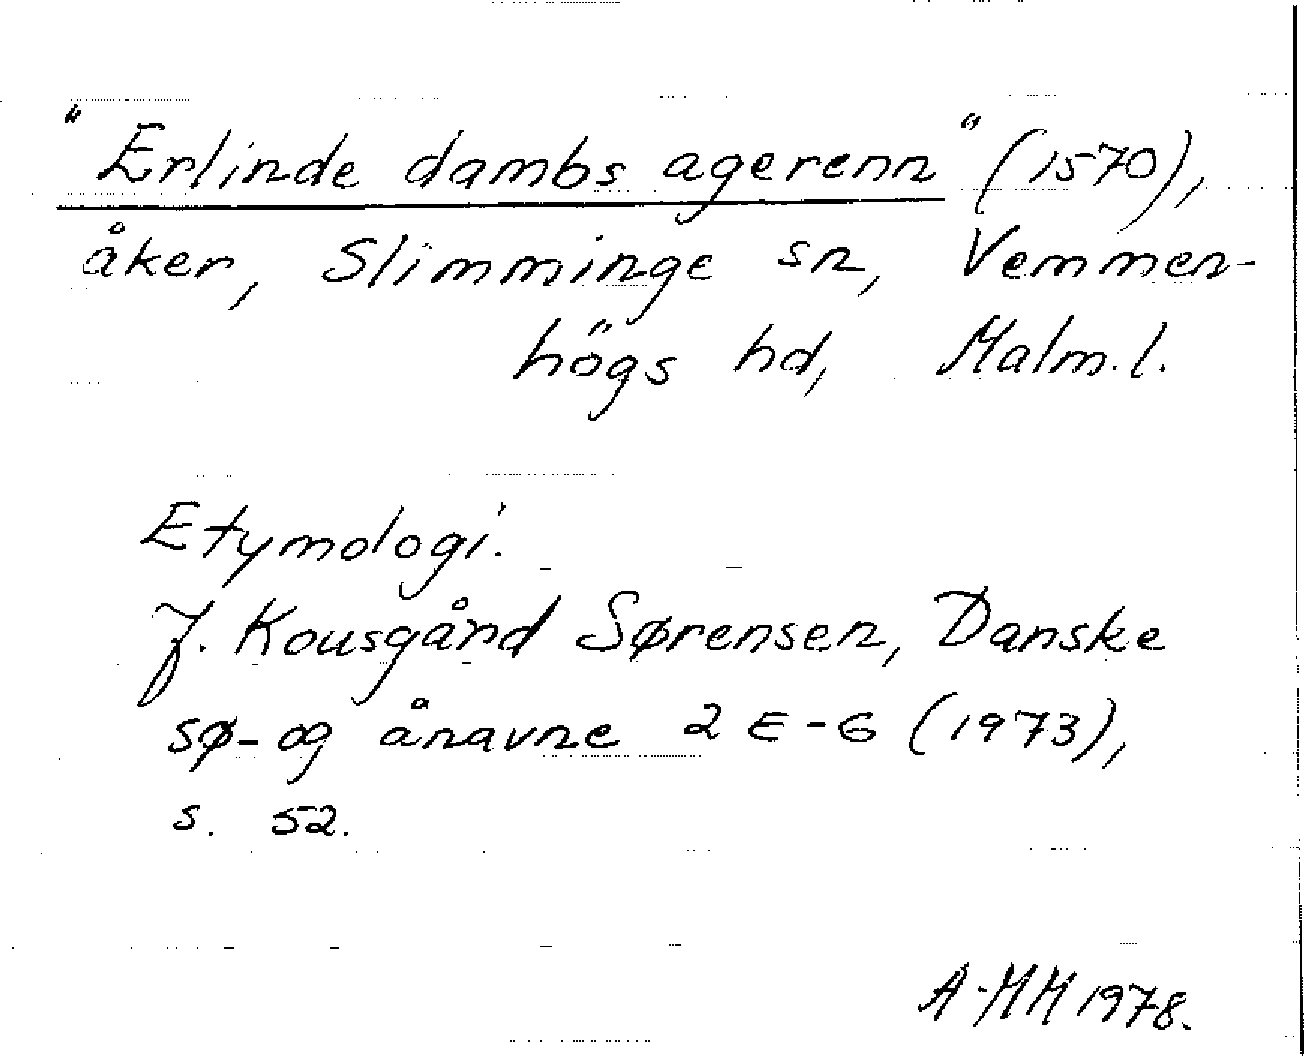 "Erlinde dambs agerenn" (1570),
åker, Slimminge sn, Vemmen-
högs hd, Malm. l.
Etymologi.
J. Kousgård Sørensen, Danske
sø- og ånavne 2 E-G (1973),
s. 52.
A-MH 1978.